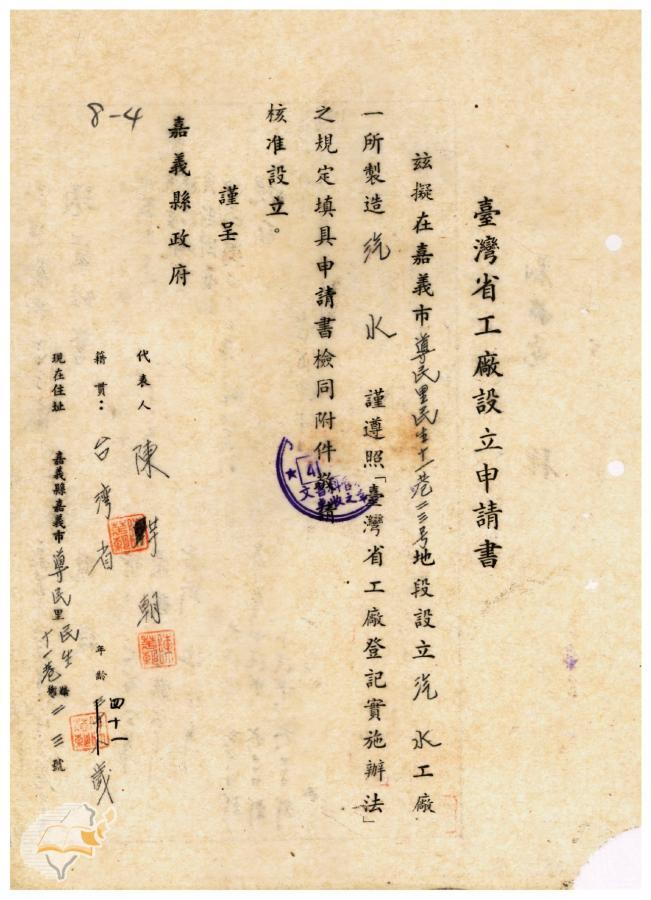 臺灣省工廠設立申請書
茲擬在嘉義市導民里民生十一巷二三号地段設立汽水工廠
一所製造汽水謹遵照「臺灣省工廠登記實施辦法」
之規定填具申請書檢同附件敬請
核准設立。
謹呈
嘉義縣政府
8-4
代表人 陳 朝
籍貫：台湾省 年齡 四十一歲
現在住址 嘉義縣嘉義市導民里民生十一巷二三號